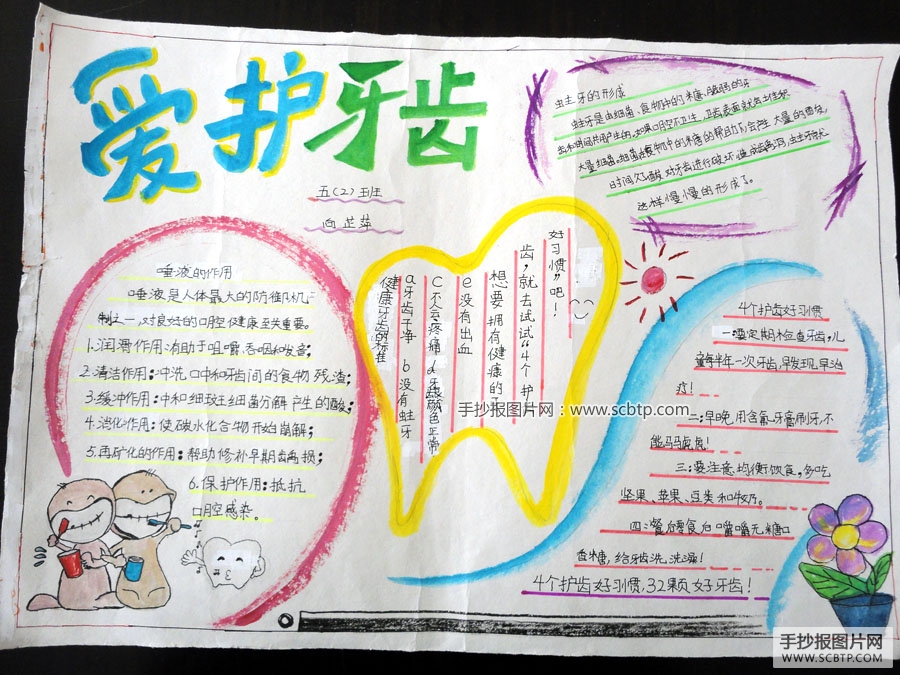 爱护牙齿
五(2)班
虫主牙的形成
蛀牙是由细菌、食物中的米唐、脆弱的牙
大量细菌。细菌在食物中的米唐的帮助下会产生大量的酸
时间久了酸对牙齿进行破坏
这样慢慢的形成了。
唾液的作用
唾液是人体最大的防御机
制之一,对良好的口腔健康至关重要。
1.润滑作用:有助于咀嚼、吞咽和发音;
2.清洁作用:冲洗口中和牙齿间的食物残渣;
3.缓冲作用:中和细致王细菌分解产生的酸;
4.消化作用:使碳水化合物开始崩解;
5.再矿化的作用:帮助修补早期齿龋损;
6.保护作用:抵抗
口腔感染。
好习惯”吧!
齿,就去试试“4个护
想要拥有健康的牙
e没有出血
c不会疼痛 d牙龈颜色正常
a牙齿干净 b没有蛀牙
健康牙齿的标准
手抄报图片网:www.scbtp.com
4个护齿好习惯
一:要定期木检查牙齿,儿
童每半年一次牙齿,早发现,早治
疗!
二:早晚用含氟牙膏刷牙,不
能马马虎虎!
三:要注意均衡饮食,多吃
坚果、苹果、豆类和牛奶。
四:餐后零食后嚼嚼无糖口
香糖,给牙齿洗洗澡!
4个护齿好习惯,32颗好牙齿!
手抄报图片网
WWW.SCBTP.COM